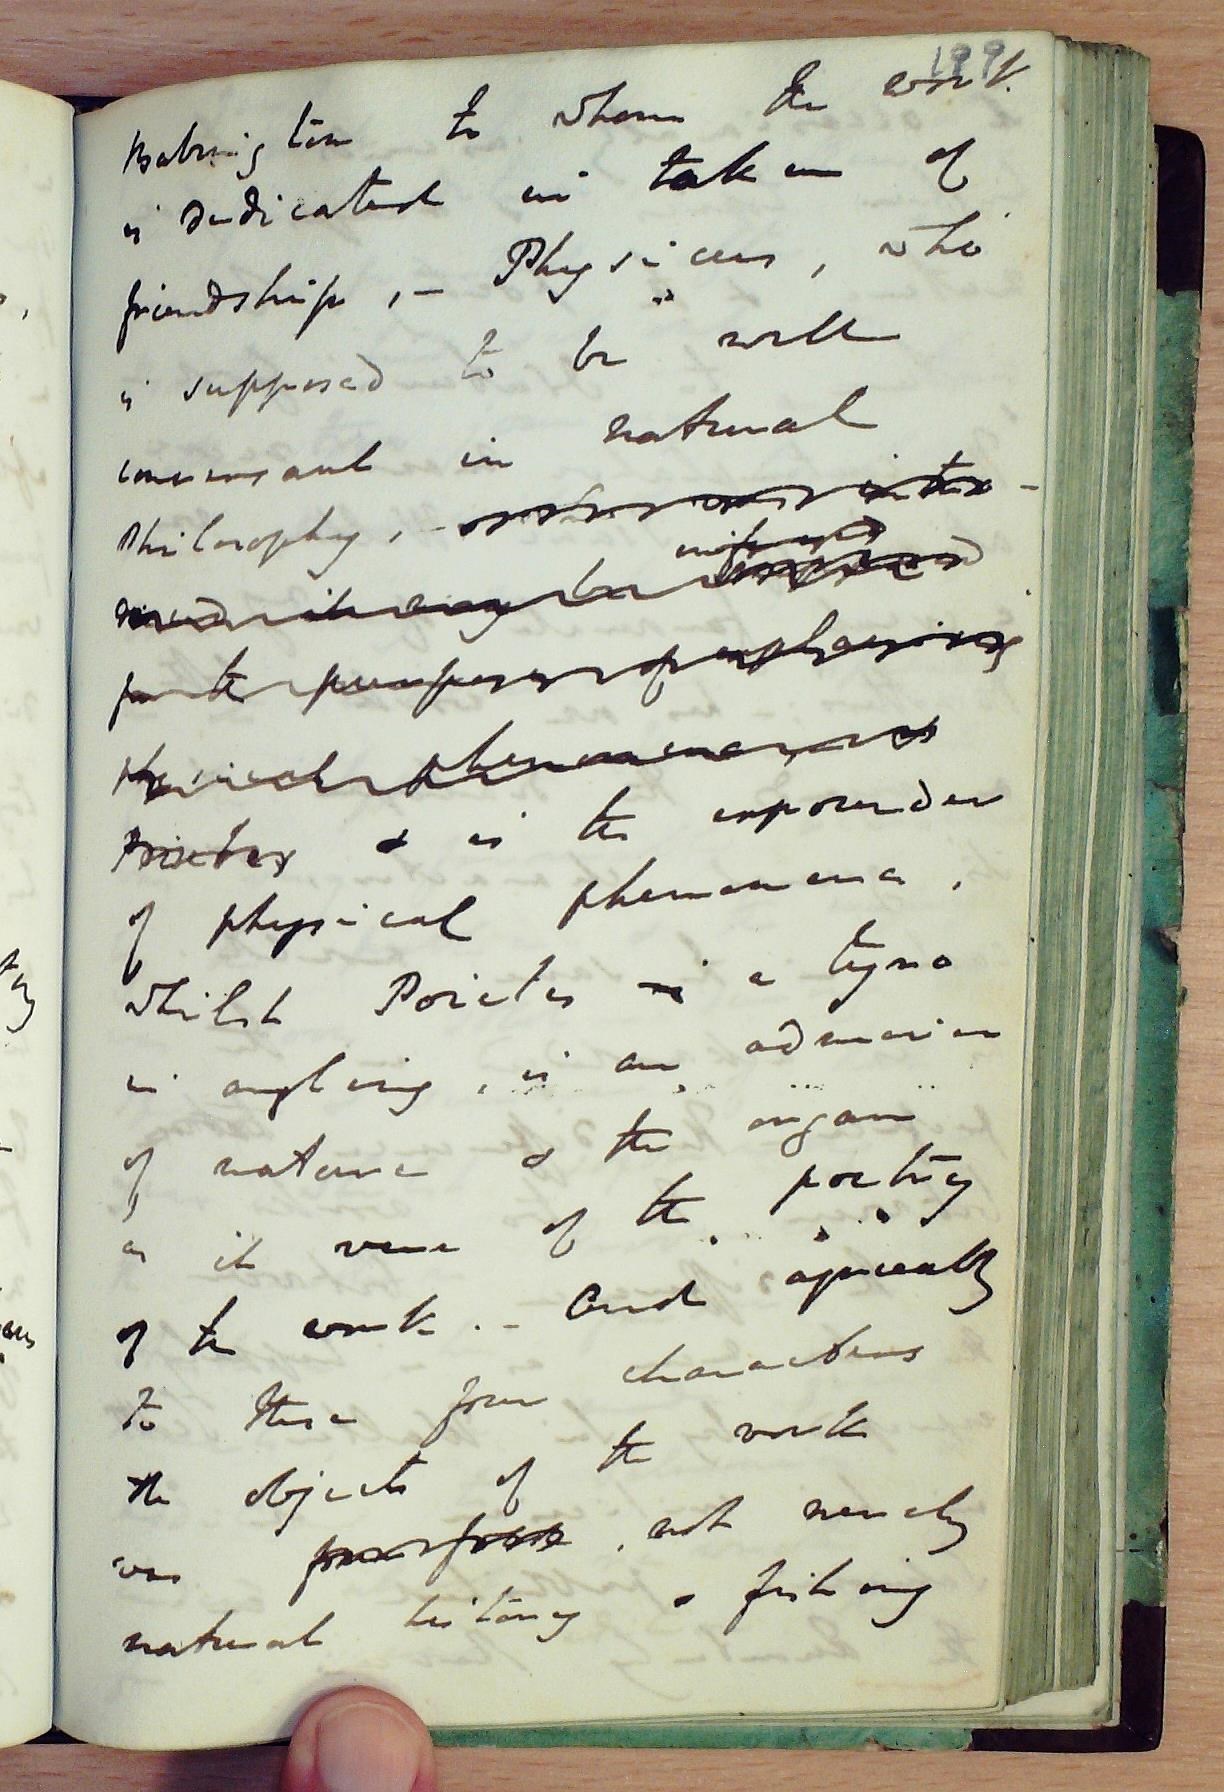 199
Babington to whom the work
is dedicated in token of
friendship, – Physicus, who
is supposed to be well
conversant in natural
Philosophy, –
for the purposes of explaining
physical phenomena, as
Poietes & is the expounder
of physical phenomena,
whilst Poietes a tyro
in angling, is an admirer
of nature & the organ
as it were of the poetry
of the work. – And agreeably
to these four characters
the objects of the work
was not merely
natural history & fishing